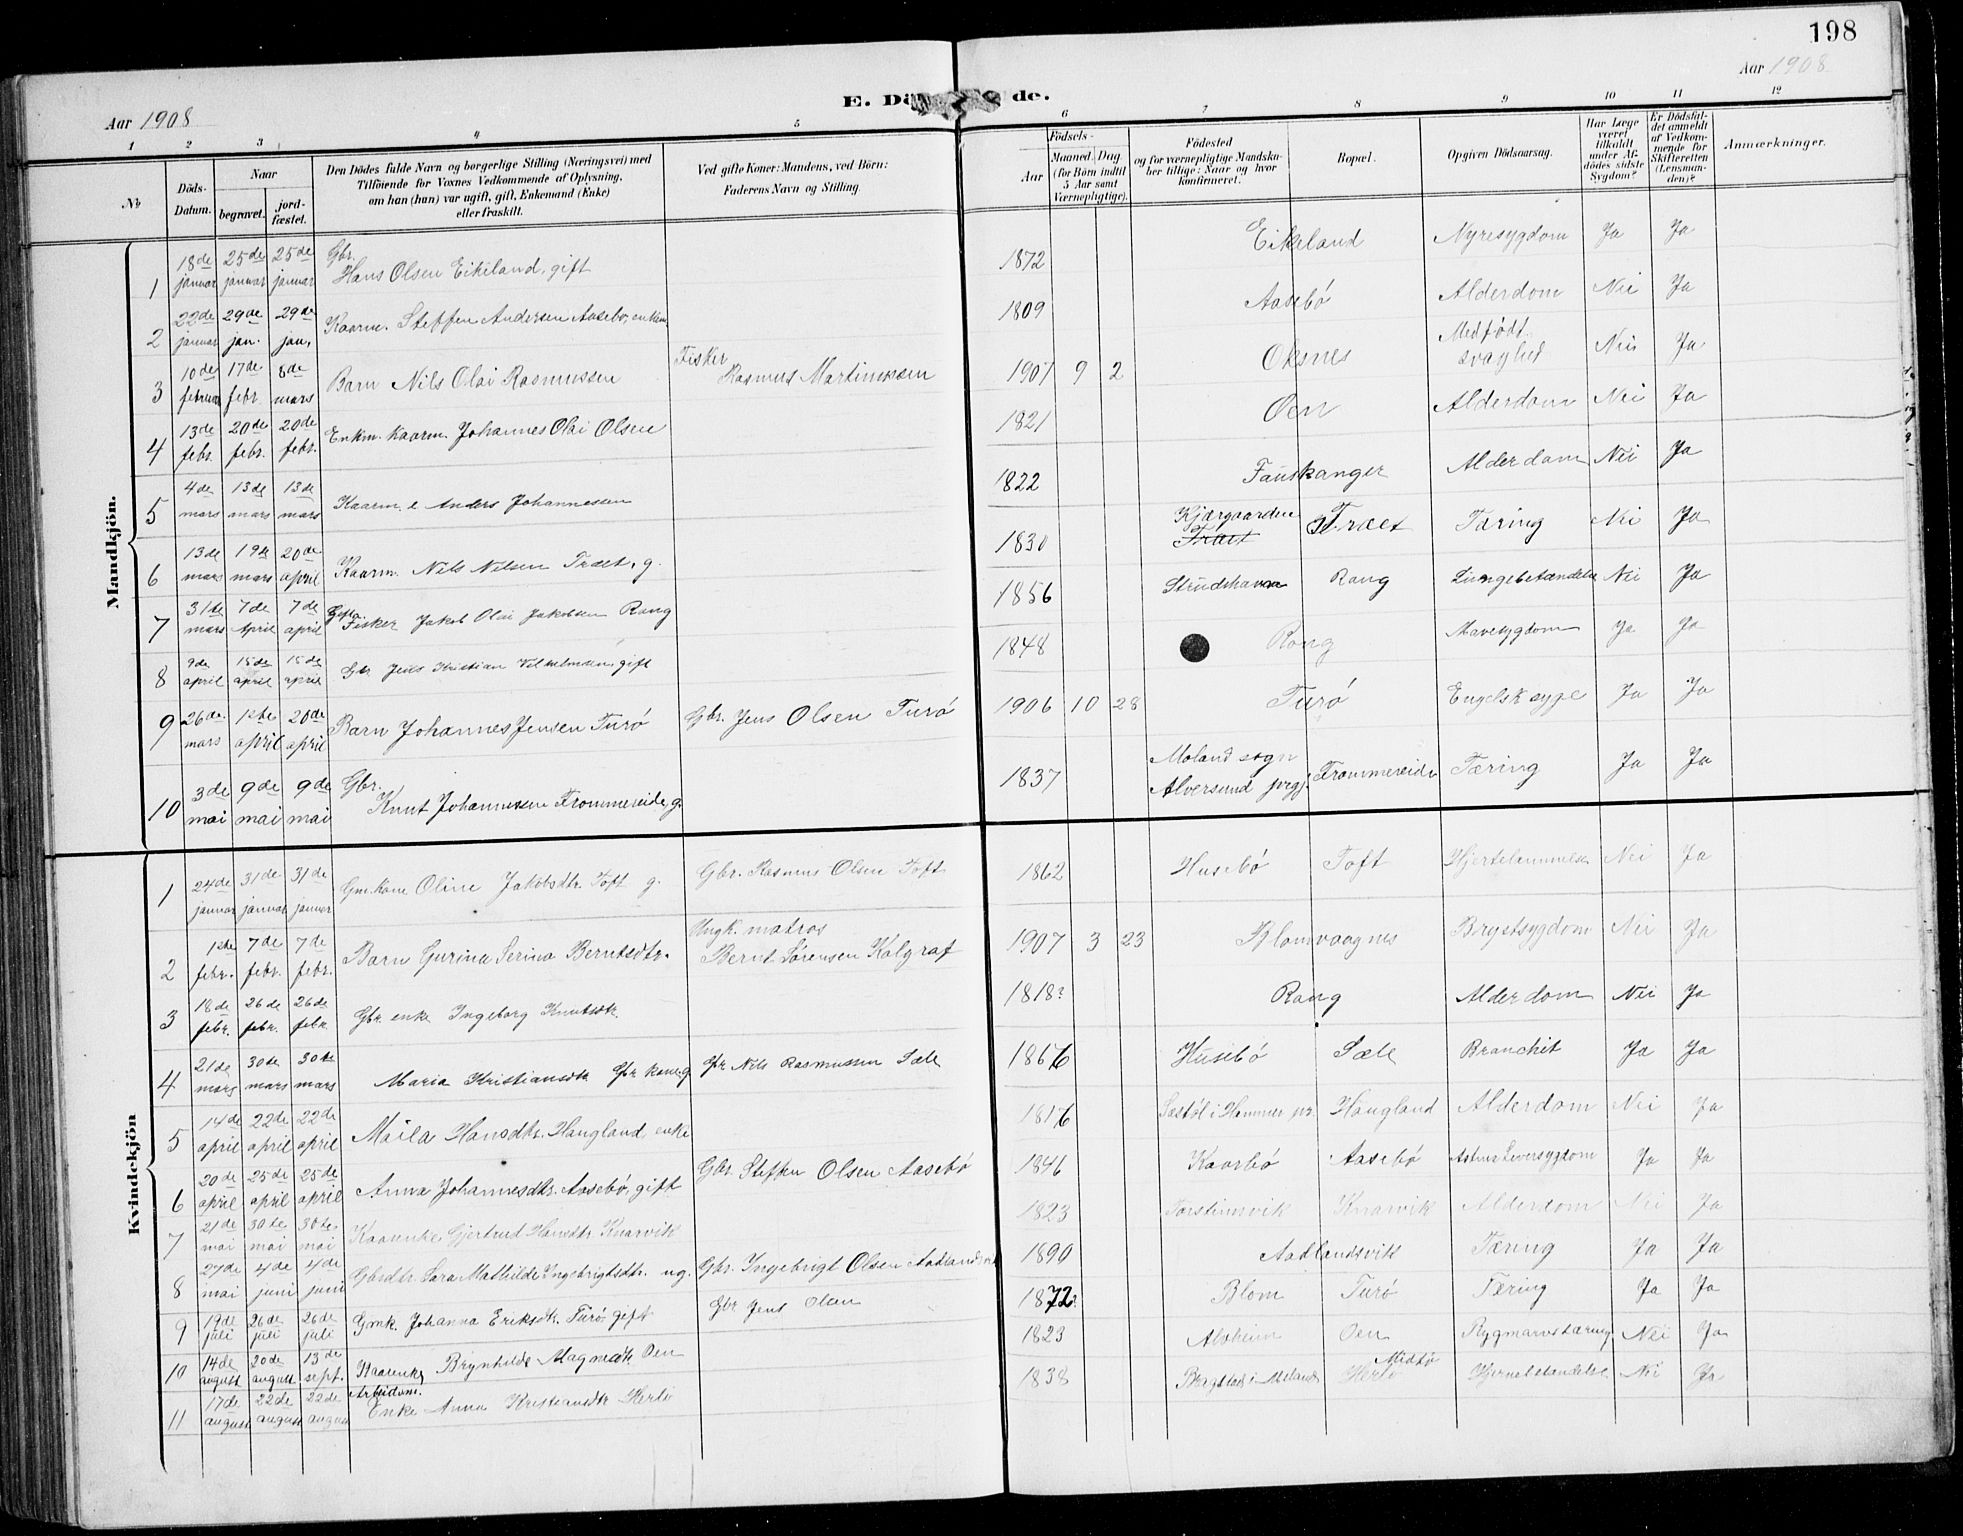 198
Aar 1908
E. Dö de.
Aar 1908
1 2 3 4 5 6 7 8 9 10 11 12
No
Döds-Datum.
Naar
begravet.
jord-fæstet.
Den Dödes fulde Navn og borgerlige Stilling (Næringsvei) med
Tilföiende for Voxnes Vedkommende af Oplysning,
om han (hun) var ugift, gift, Enkemand (Enke)
eller fraskilt.
Ved gifte Koner: Mandens, ved Börn:
Faderens Navn og Stilling.
Födsels-
Aar
Maaned. Dag.
(for Börn indtil
5 Aar samt
Værnepligtige).
Födested
og for værnepligtige Mandska-
ber tillige: Naar og hvor
konfirmeret.
Bopæl.
Opgiven Dödsaarsag.
Har Læge
været
tilkaldt
under Af-
dödes sidste
Sygdom?
Er Dödsfal-
det anmeldt
af Vedkom-
mende for
Skifteretten
(Lensman-
den)?
Anmærkninger.
Mandkjön.
1 18de januar 25de januar 25de januar Gbr. Hans Olsen Eikeland, gift 1872 Eikeland Nyresygdom Ja Ja
2 22de januar 29de jan. 29de jan. Kaarm. Steffen Andersen Aasebø, enkem. 1809 Aasebø Alderdom Nei Ja
3 10de februar 17de febr. 8de mars Barn Nils Olai Rasmussen Fisker Rasmus Martinussen 1907 9 2 Oksnes Medfødt svaghed Nei Ja
4 13de febr. 20de febr. 20de febr. Enkm. Kaarm. Johannes Olai Olsen 1821 Oen Alderdom Nei Ja
5 4de mars 13de mars 13de mars Kaarm. e Anders Johannessen 1822 Fauskanger Alderdom Nei Ja
6 13de mars 19de mars 20de april Kaarm. Nils Nilsen Træet, g. 1830 Kjærgaarden Træet Træet Tæring Nei Ja
7 31de mars 7de April 7de april Gift Fisker Jakob Olai Jakobsen Rong 1856 Strudshavn Rong Lungebetændelse Nei Ja
8 9de april 15de april 15de april Gbr. Jens Kristian Vilhelmsen, gift 1848 Rong Mavesygdom Ja Ja
9 26de mars 1ste april 20de april Barn Johannes Jensen Turø Gbr. Jens Olsen Turø 1906 10 28 Turø Engelsk syge Ja Ja
10 3de mai 9de mai 9de mai Gbr. Knut Johannessen Frommereide, g. 1837 Moland sogn Alversund prgj. Frommereide Tæring Ja Ja
Kvindekjön
1 24de januar 31de januar 31de januar Gm. Kone Oline Jakobsdtr. Toft g. Gbr. Rasmus Olsen Toft 1862 Husebø Toft Hjertelammelse Nei Ja
2 1ste febr. 7de febr. 7de febr. Barn Gurina Serina Berntsdtr. Ungk. matros Bernt Sørensen Kalgraf 1907 3 23 Blomvaagnes Brystsygdom Nei Ja
3 18de febr. 26de febr. 26de febr. Gbr. enke Ingeborg Knutsdtr. 1818? Rong Alderdom Nei Ja
4 21de mars 30te mars 30te mars Maria Kristiansdtr. Gbr. kone, g Gbr. Nils Rasmussen Sæle 1866 Husebø Sæle Bronchit Ja Ja
5 14de april 22de april 22de april Maila Hansdtr. Haugland, enke 1816 i Hammer pr. Haugland Alderdom Nei Ja
6 20de april 25de april 25de april Anna Johannesdtr. Aasebø, gift Gbr. Steffen Olsen Aasebø 1846 Kaarbø Aasebø Leversygdom Ja Ja
7 21de mai 30te mai 30te mai Kaarenke Gjertrud Hansdtr. Knarvik 1823 Torsteinsvik Knarvik Alderdom Nei Ja
8 27de mai 4de juni 4de juni Gbrsdtr. Sara Mathilde Ingebrigtsdtr. ug. Gbr. Ingebrigt Olsen Aadlandsvik 1890 Aadlandsvik Tæring Ja Ja
9 19de juli 26de juli 26de juli Gmk. Johanna Eriksdtr. Turø, gift Gbr. Jens Olsen 1872 Blom Turø Tæring Ja Ja
10 14de august 20de august 13de sept. Kaarenke Brynhilde Magnedtr. Oen 1823 Alvheim Oen Rygmarvstæring Nei Ja
11 17de august 22de august 22de august Arbeidsm. Enke Anna Kristiansdtr. Herlø 1838 i Meland Midtø Herlø Hjernebetændelse Nei Ja